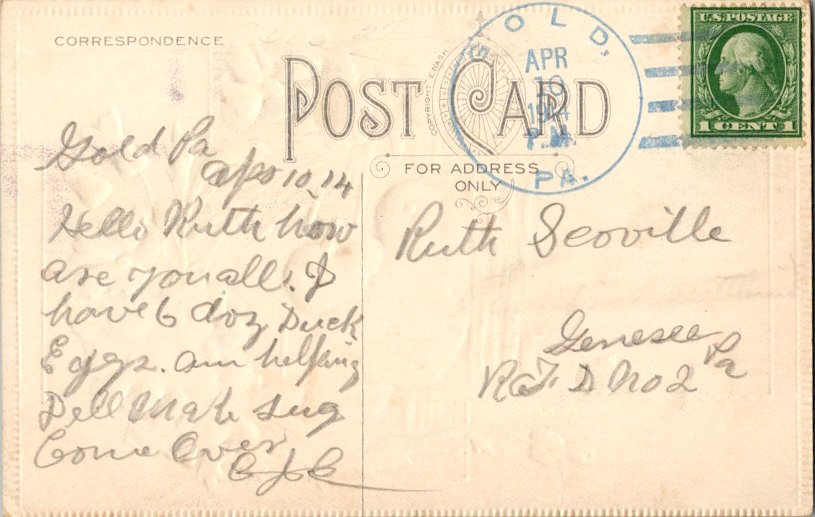 CORRESPONDENCE
POST CARD
COPYRIGHT E. NASH
FOR ADDRESS
ONLY
GOLD,
APR
10
1914
P.M.
PA.
U.S. POSTAGE
1 CENT 1
Gold Pa
Apr 10, 14
Hello Ruth how
are you all. I
have 6 doz Duck
Eggs. am helping
Dell Make Sug
Come Over
Ruth Scoville
Genesee
Pa
R.F.D No 2